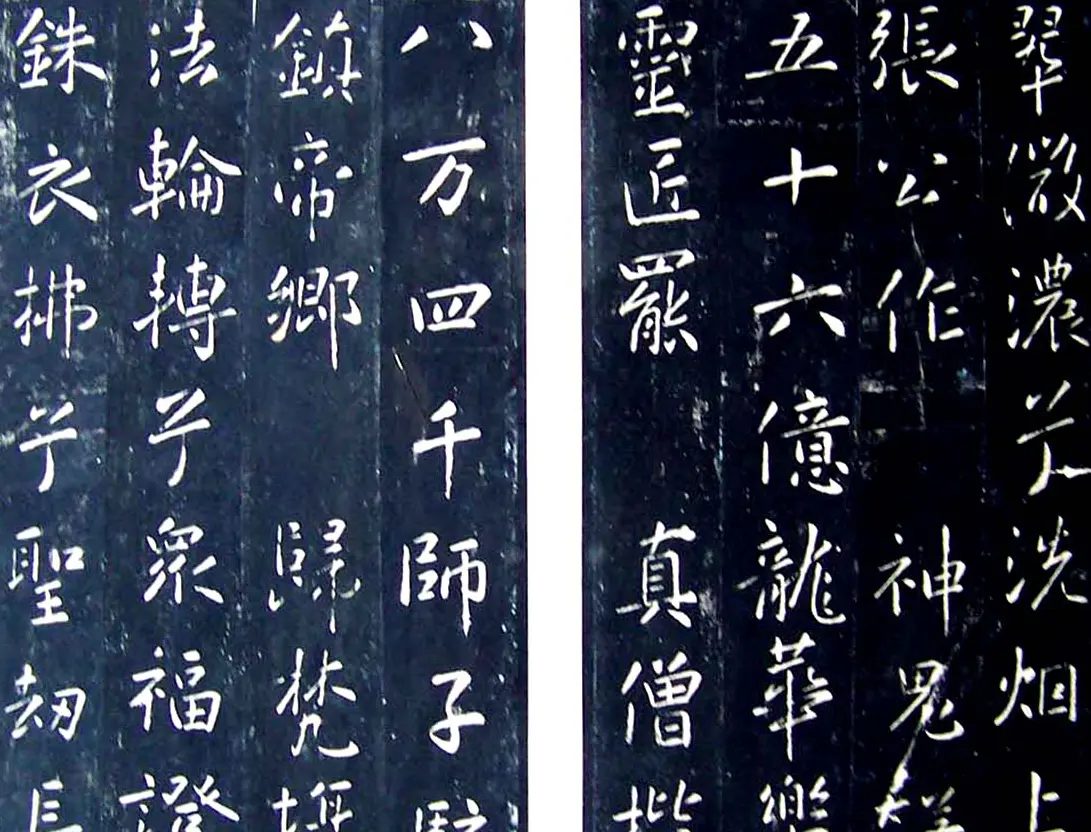 翠微濃兮洗烟
張公作 神鬼
五十六億龍華樂
靈匠罷 真僧
八万四千師子
鎮帝鄉 歸梵
法輪轉兮衆福證
銖衣拂兮聖劫長